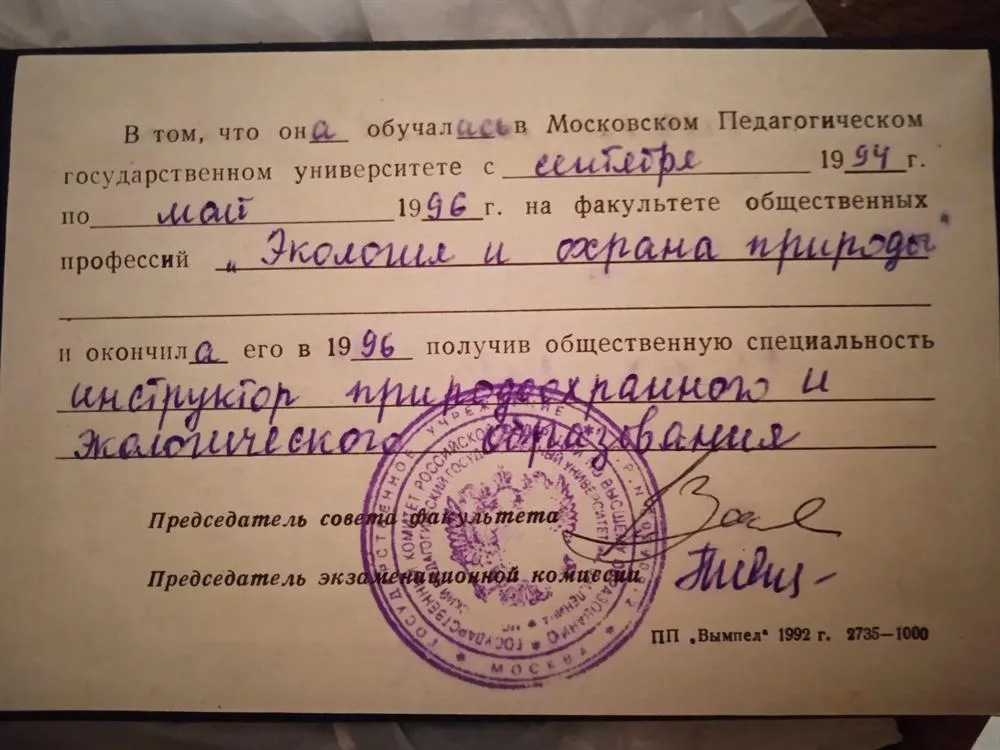 В том, что она обучалась в Московском Педагогическом
государственном университете с сентября 1994 г.
по май 1996 г. на факультете общественных
профессий „Экология и охрана природы"
и окончила его в 1996 получив общественную специальность
инструктор природоохранного и
экологического образования
Председатель совета факультета
Председатель экзаменационной комиссии
ПП „Вымпел" 1992 г. 2735—1000
ГОСУДАРСТВЕННОЕ УЧРЕЖДЕНИЕ
МОСКВА